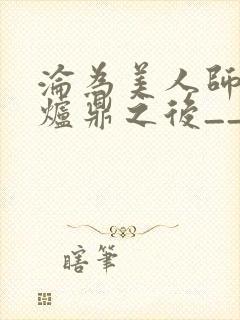 淪為美人師
爐鼎之後__
瞎筆